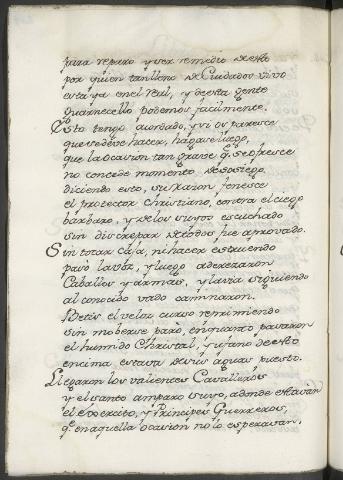 para reparo y ver remedio desto
por quien tan lleno de Cuidados vivo
esta ya en el Real, y de esta gente
guarnecello podemos facilmente.
Esto tengo acordado, y si os paresce
que se deve hacer, hagase luego,
que la ocasion tan grande q. se ofresce
no concede momento de sosiego,
diciendo esto, su raçon fenesce
el protector Christiano, contra el ciego
barbaro, y de los suyos escuchado
sin discrepar de todos fue aprovado.
Sin tocar caja, ni hacer estruendo
pasó la voz, y luego aderezaron
Caballos y armas, y la via siguiendo
al conocido vado caminaron.
Betis el veloz curso reprimiendo
sin moberse paró, en quanto pasaron
el humido Christal, y ufano desto
encima estava de sus aguas puesto.
Llegaron los valientes Cavalleros
y el santo amparo suyo, adonde estavan
el Exercito, y Principes Guerreros,
q. en aquella ocasion no lo esperavan,